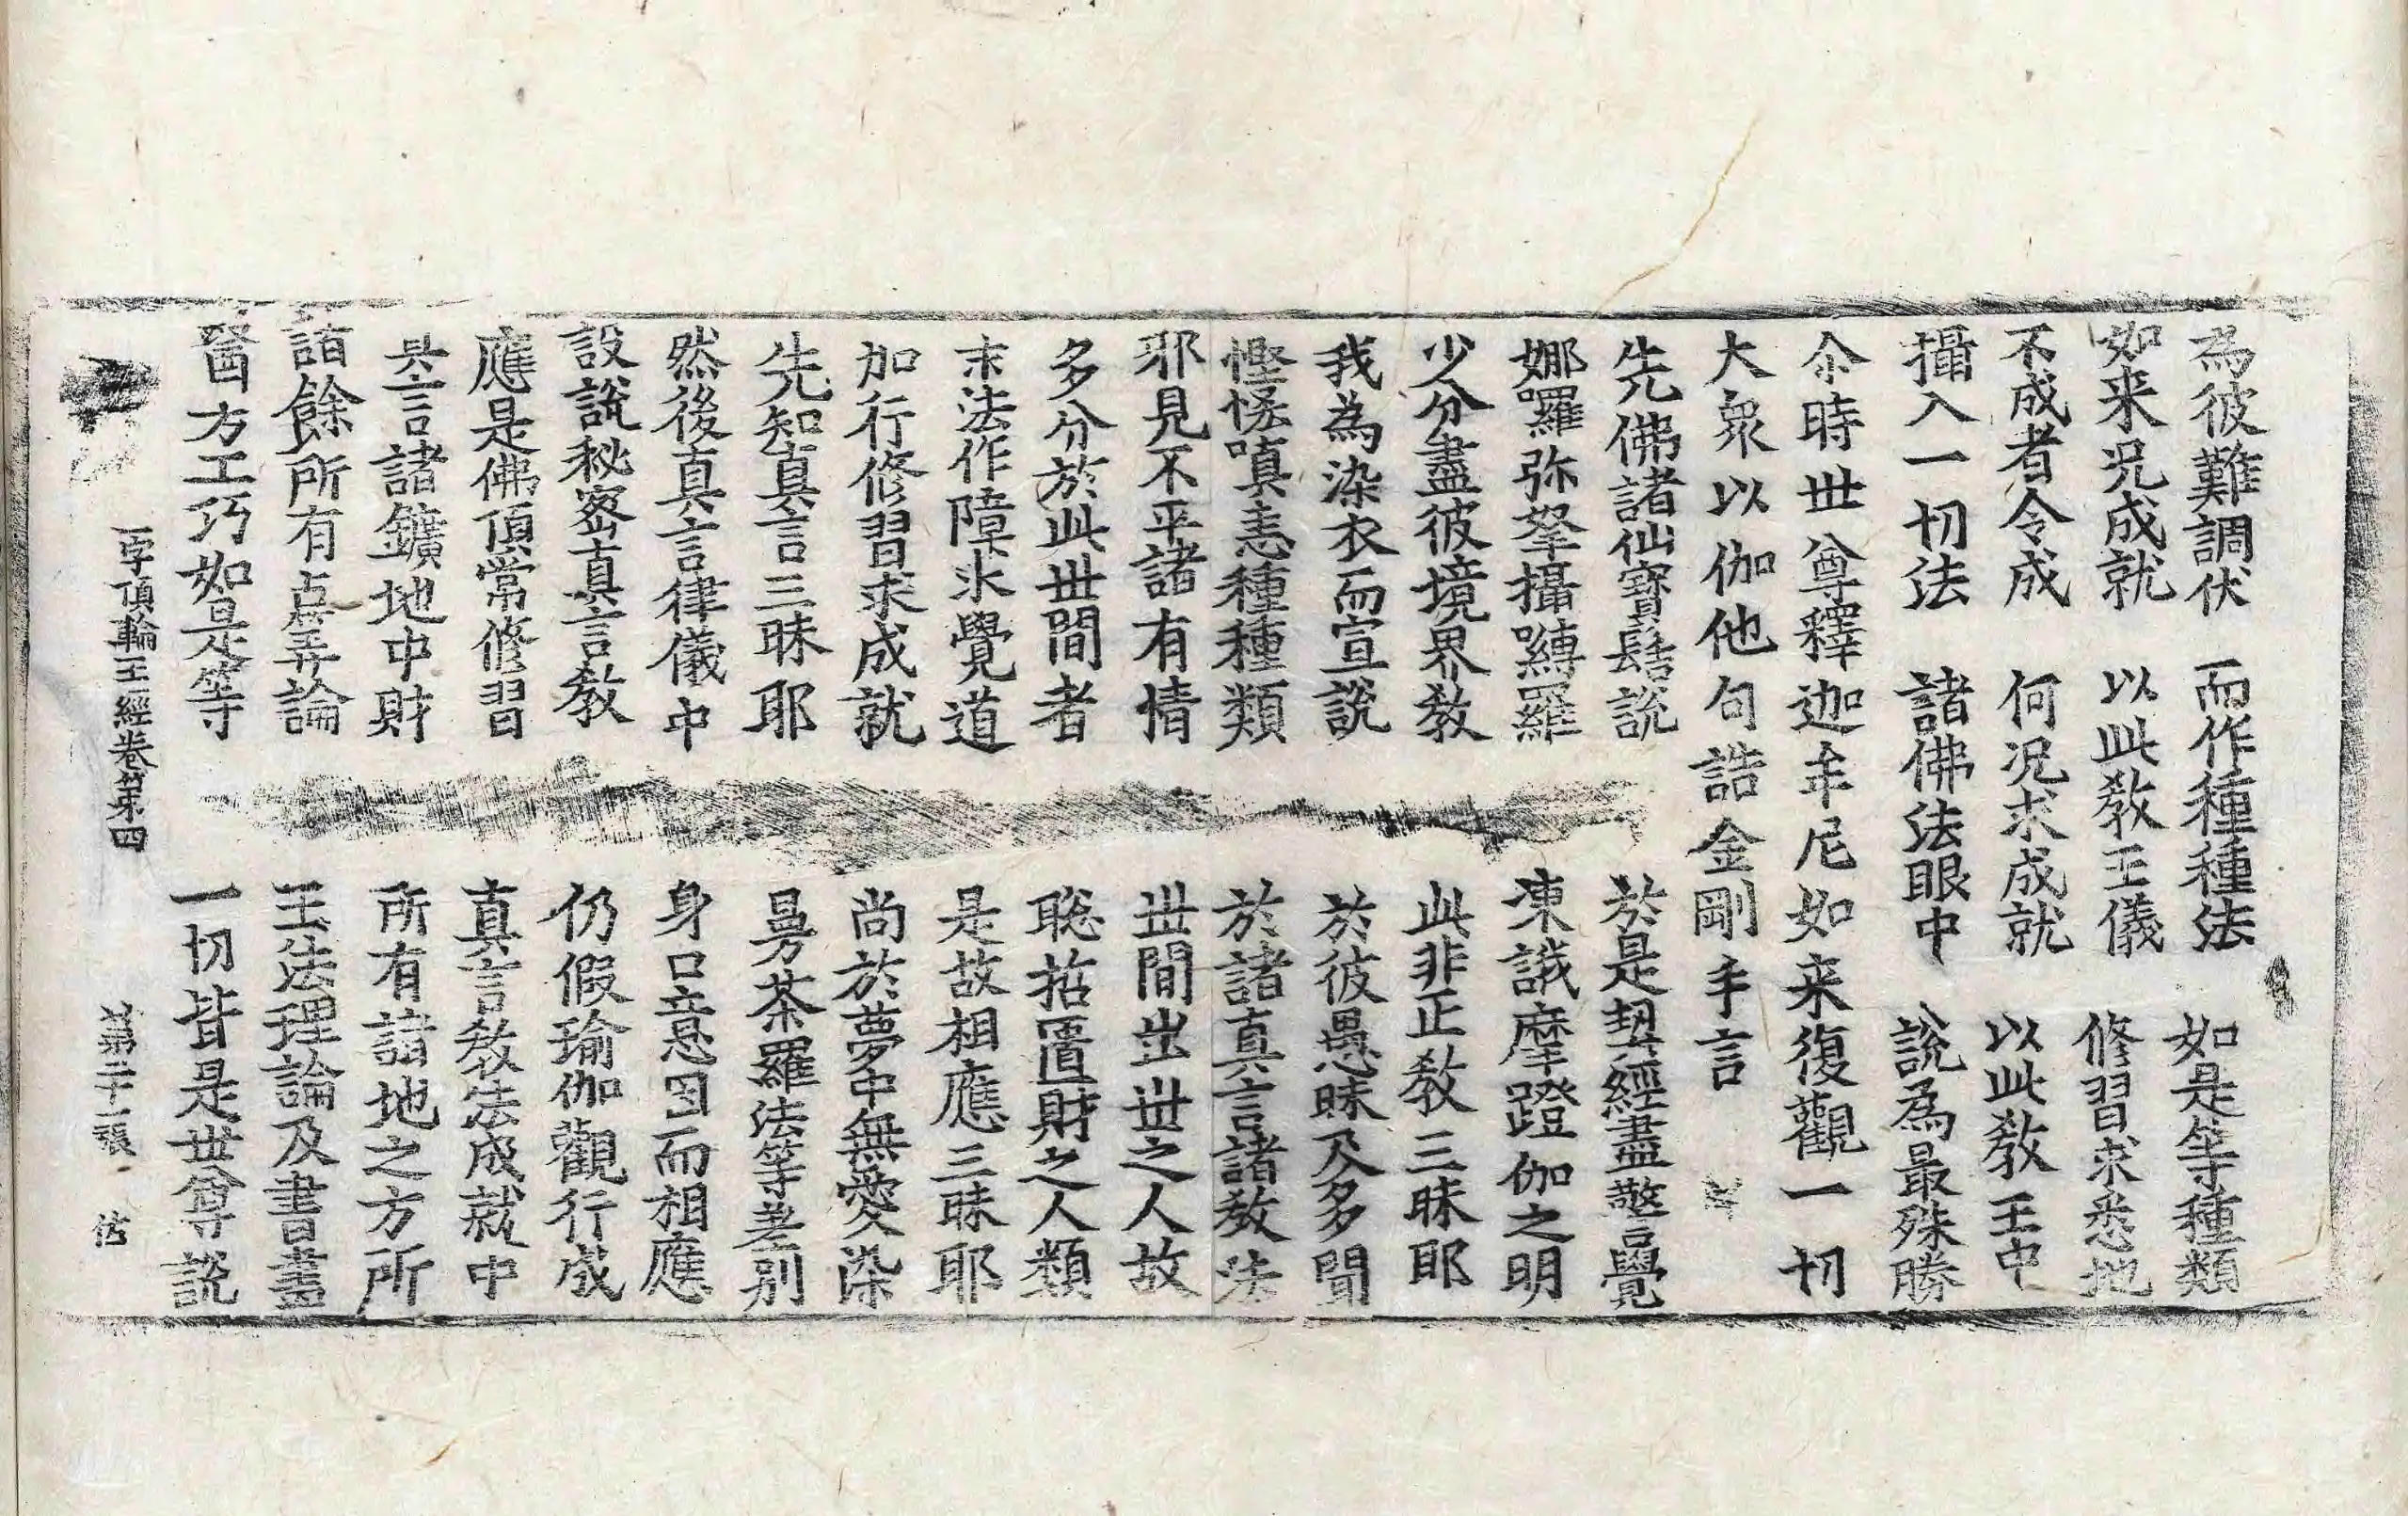 為彼難調伏　而作種種法　如是等種類
如来况成就　以此教王儀　修習求悉地
不成者令成　何况求成就　以此教王中
攝入一切法　諸佛法眼中　說為最殊勝
尒時世尊釋迦牟尼如来復觀一切
大衆以伽他句誥金剛手言
先佛諸仙寶髻說　於是契經盡警覺
娜囉弥拏攝嚩羅　凍誐摩蹬伽之明
少分盡彼境界教　此非正教三昧耶
我為染衣而宣說　於彼愚昧及多聞
慳悋嗔恚種種類　於諸真言諸教法
邪見不平諸有情　世間出世之人故
多分於此世間者　聡拈匱財之人類
末法作障氷覺道　是故相應三昧耶
加行修習求成就　尚於夢中無愛染
先知真言三昧耶　曼茶羅法等差別
然後真言律儀中　身口意因而相應
設說秘密真言教　仍假瑜伽觀行成
應是佛頂常修習　真言教法成就中
具言諸鑛地中財　所有諸地之方所
諸餘所有占筭論　王法理論及書畫
醫方工巧如是等　一切皆是世尊說
一字頂輪王經卷第四　第二十一張　佑